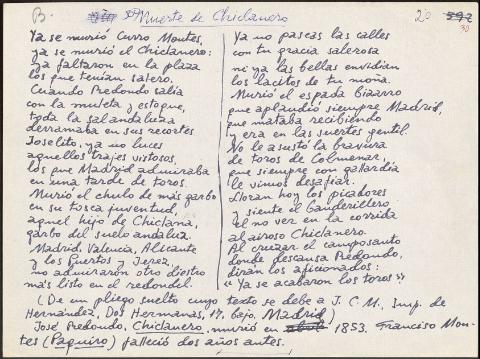 B. 30 Muerte de Chiclanero 20 592
30
Ya se murió Curro Montes,
ya se murió el Chiclanero:
ya faltaron en la plaza
los que tenían salero.
Cuando Redondo salía
con la muleta y estoque,
toda la sal andaluza
derramaba en sus recortes
Joselito, ya no luces
aquellos trajes vistosos,
los que Madrid admiraba
en una tarde de toros.
Murió el chulo de más garbo
en su tosca juventud,
aquel hijo de Chiclana,
garbo del suelo andaluz.
Madrid, Valencia, Alicante
y los Puertos y Jerez,
no admiraron otro diestro
más listo en el redondel.
Ya no paseas las calles
con tu gracia salerosa
ni ya las bellas envidian
los lacitos de tu moña.
Murió el espada bizarro
que aplaudió siempre Madrid,
que mataba recibiendo
y era en las suertes gentil.
No le asustó la bravura
de toros de Colmenar,
que siempre con gallardía
le vimos desafiar.
Lloran hoy los picadores
y siente el banderillero
el no ver en la corrida
al airoso Chiclanero.
Al cruzar el camposanto
donde descansa Redondo,
dirán los aficionados:
"Ya se acabaron los toros"
(De un pliego suelto cuyo texto se debe a J. C. M., Imp. de
Hernández, Dos Hermanas, 17, bajo, Madrid)
José Redondo, Chiclanero, murió en 1853. Francisco Mon-
tes (Paquiro) falleció dos años antes.